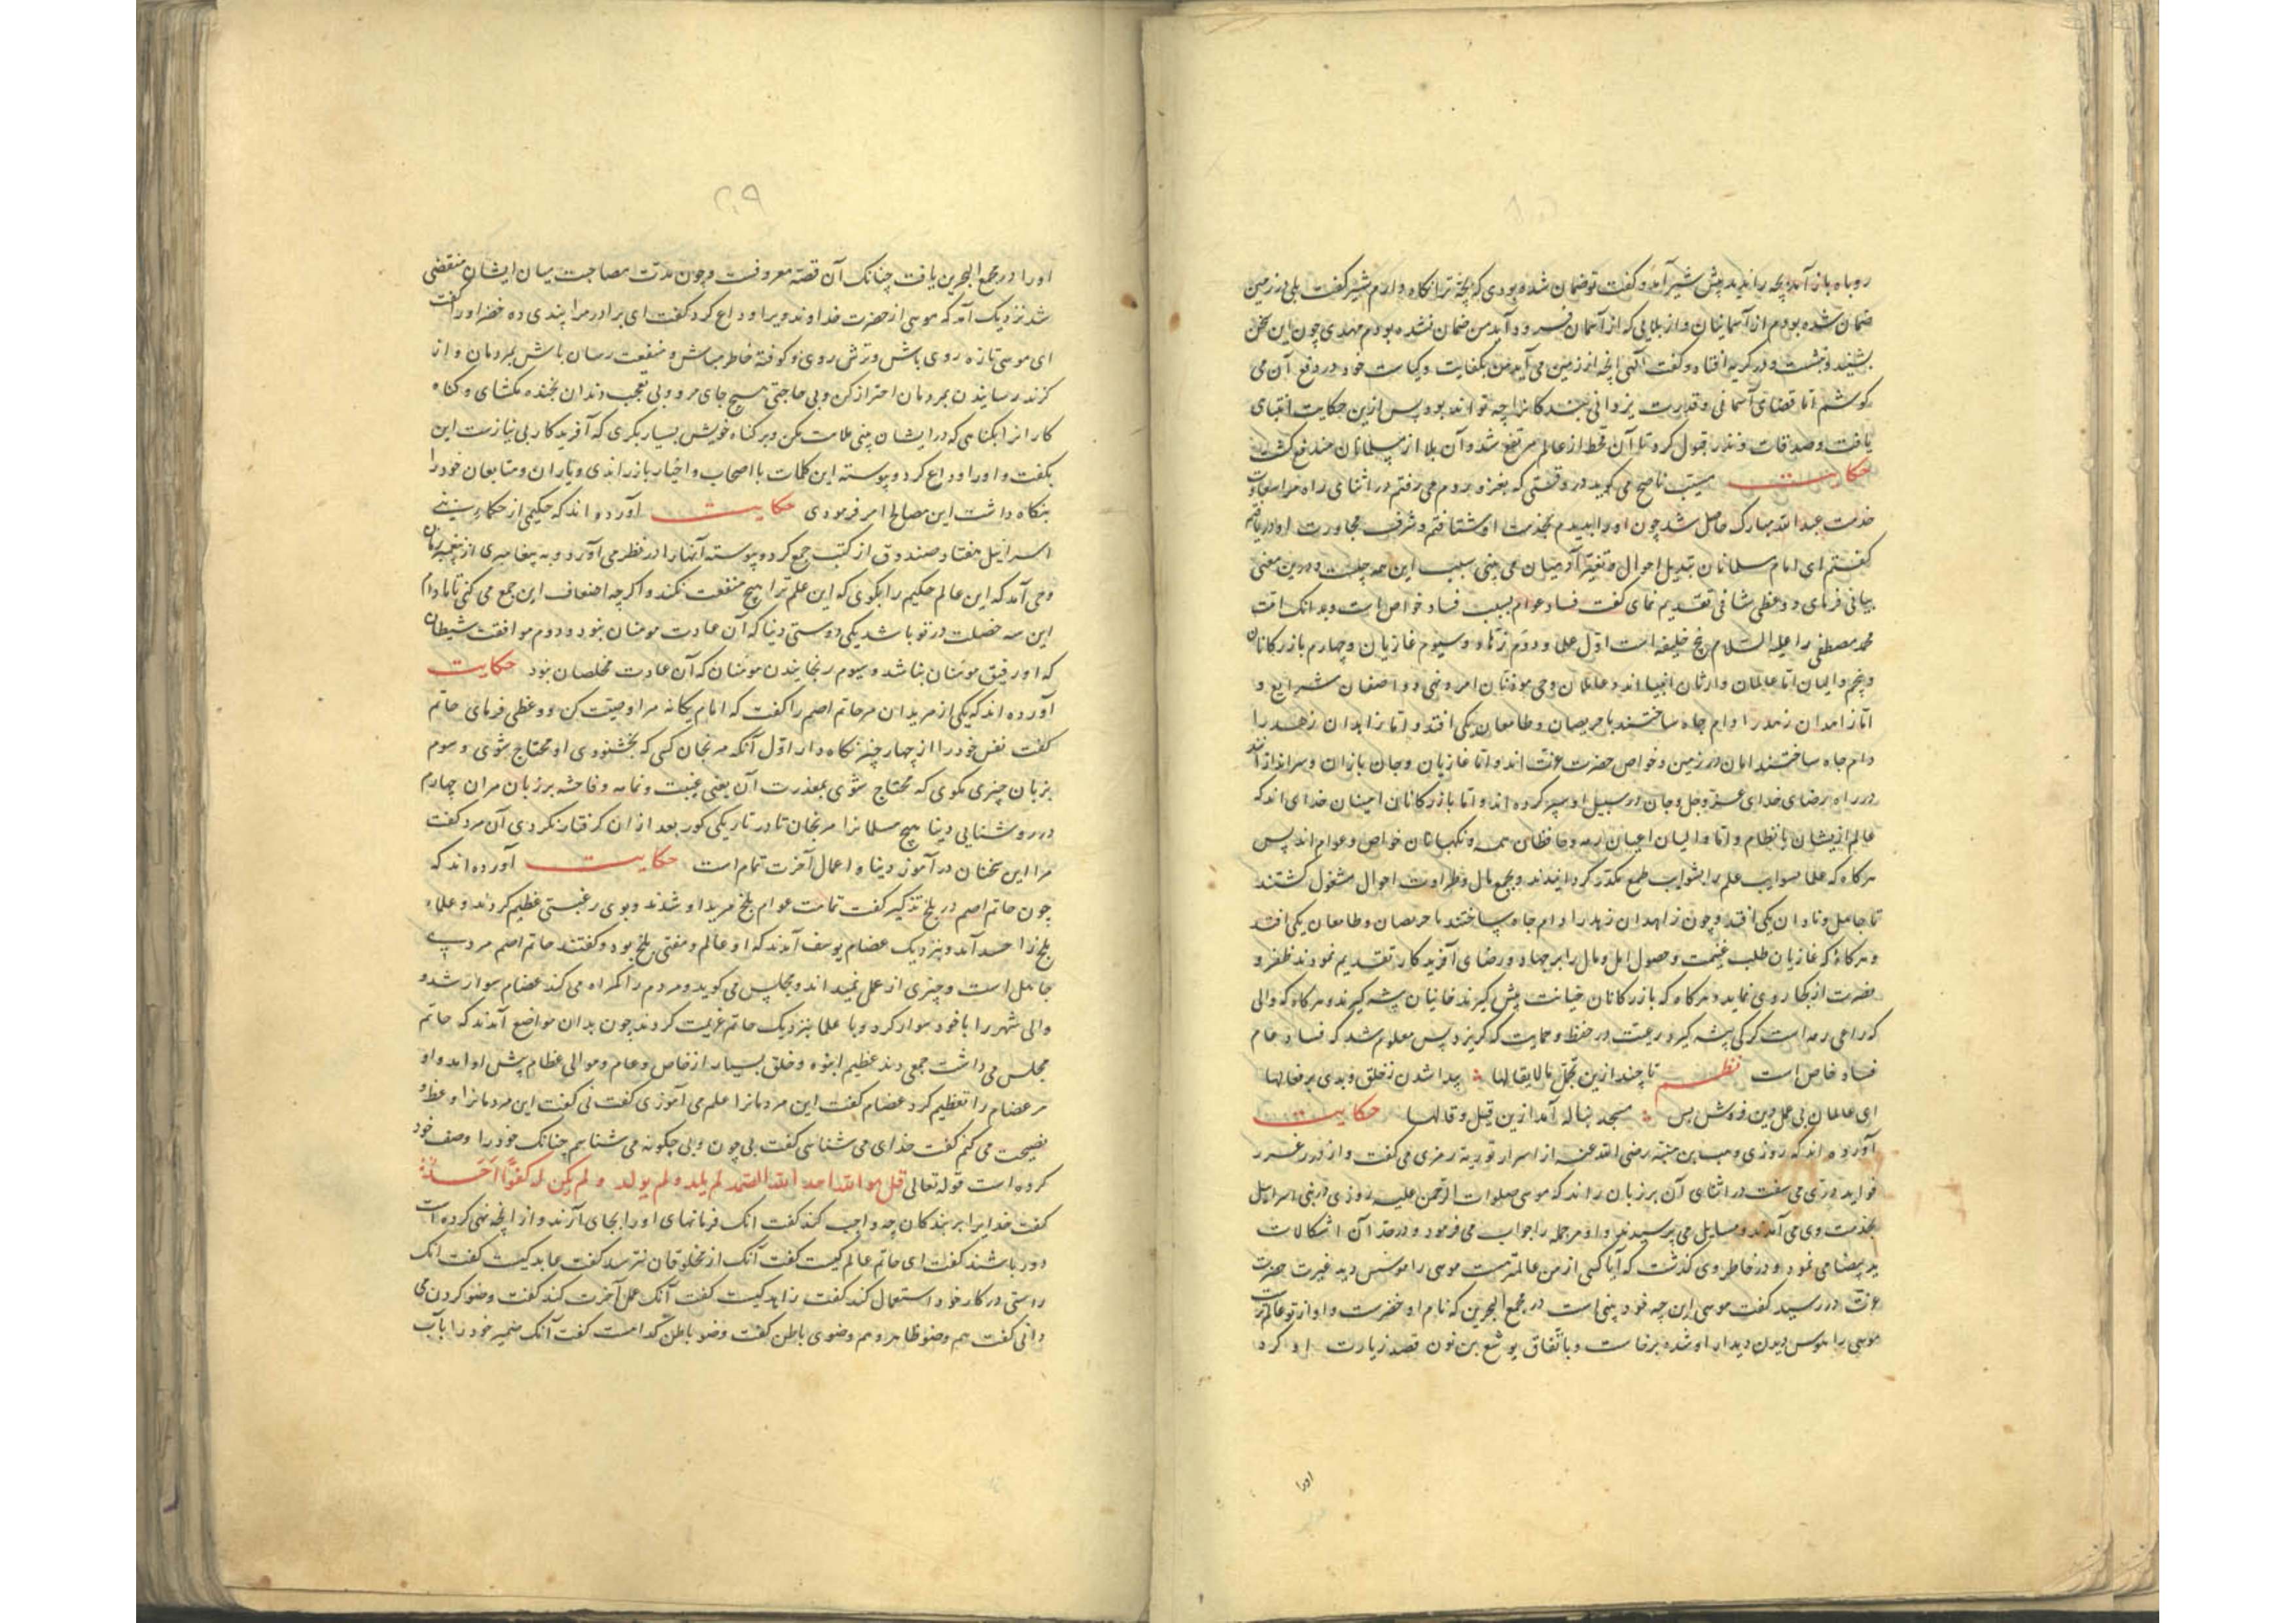 روباه باز آمد بچه را ندید پیش شیر آمد و گفت تو ضمان شده بودی که بچه ترا نگاه دارم شیر گفت بلی در زمین
ضمان شده بودم از آسمانیان و از بلایی که از آسمان فرود آید من ضمان نشده بودم مهدی چون این سخن
بشنید و در گریه افتاد و گفت الهی آنچه از زمین می آید من بکفایت و کیاست خود در دفع آن می
کوشم اما قضای آسمانی و قدرت یزدانی بندگانرا چه تواند بود پس ازین حکایت انتباهی
یافت و صدقات و نذر قبول کرد تا آن قحط از عالم مرتفع شد و آن بلا از مسلمانان مندفع گشت
حکایت مسیّب ناصح می گوید در وقتی که بغزو روم می رفتم در اثنای راه مرا سعادت
خدمت عبدالله مبارک حاصل شد چون او را بدیدم بخدمت او شتافتم و شرف مجاورت او دریافتم
گفتم ای امام مسلمانان تبدیل احوال و تغیر آدمیان می بینی سبب این همه چیست و درین معنی
بیانی فرمای و وعظی شافی تقدیم نمای گفت فساد عوام بسبب فساد خواص است و بدانک امّت
محمد مصطفی را علیه السلام پنج خلیفه است اول علما و دوم زهّاد و سیوم غازیان و چهارم بازرکانان
و پنجم والیان اما عالمان وارثان انبیااند و عاملان وحی موقنان امر و نهی و واصفان شرایع و
اما زاهدان زهد را دام جاه ساختند با حریصان و طامعان یکی افتد و اما زاهدان زهد را
دام جاه ساختند امان در زمین و خواص حضرت عزت اند و اما غازیان و جان بازان و سراندازانند
در راه رضای خدای عز وجل و جان در سبیل او سپر کرده اند و اما بازرکانان امینان خدای اند که
عالم ازیشان با نظام و اما والیان راعیان رمه و حافظان همه و نکهبانان خواص و عوام اند پس
هرکاه که علما علم را بشوایب طمع مکدر کردانیدند و بجمع مال و طراوت احوال مشغول کشتند
تا جاهل و نادان یکی افتد و چون زاهدان زهد را دام جاه ساختند با حریصان و طامعان یکی افتند
و هرکاه که غازیان طلب غنیمت و حصول اهل و مال را بر جهاد و رضای آفریدکار تقدیم نمودند ظفر و
نصرت از کجا روی نماید و هرکاه که بازرکانان خیانت پیش گیرند خانیان پیشه گیرند و هرکاه که والی
که راعی رمه است کرکی پیشه گیرد رعیت در حفظ و حمایت که گریزد پس معلوم شد که فساد عام
فساد خاص است نظم تا چند ازین تجمّل نالایقالها پیدا شدن ز خلق و بدی بر فعالها
ای عالمان بی عمل دین فروش بس مسجد بناله آمد ازین قیل و قالها حکایت
آورده اند که روزی وهب بن منبّه رضی الله عنه از اسرار توریة رمزی می گفت و از درر غرر
فواید درّی می سفت در اثنای آن بر زبان راند که موسی صلوات الرحمن علیه روزی در بنی اسرائیل
بخدمت وی می آمدند و مسایل می پرسیدند و او هر جمله را جواب می فرمود و در حل آن اشکالات
ید بیضا می نمود و در خاطر وی گذشت که آیا کسی از من عالمتر هست موسی را مونس دید غیرت حضرت
عزت در رسید گفت موسی این چه خود بینی است در مجمع البحرین که نام او خضرست و او از تو عالم ترست
موسی را هوس دیدن دیدار او شده برخاست و باتفاق یوشع بن نون قصد زیارت او کرد
اورا
۲۰۹
اورا در مجمع البحرین یافت چنانک آن قصه معروفست و چون مدت مصاحبت میان ایشان منقضی
شد نزدیک آمد که موسی از حضرت خداوند ویرا وداع کرد گفت ای برادر مرا پندی ده خضر اورا گفت
ای موسی تازه روی باش و ترش روی و کوفته خاطر مباش و منفعت رسان باش بمردمان و از
گزند رسانیدن بمردمان احتراز کن و بی حاجتی هیچ جای مرو و بی تعجب دندان بخنده مکشای و کناه
کارانرا بکناهی که در ایشان بینی ملامت مکن و بر کناه خویش بسیار بکری که آفریدکار بی نیازست این
بگفت و اورا وداع کرد و پیوسته این کلمات با اصحاب و اخیار باز راندی و یاران و متابعان خود را
بنکاه داشت این مصالح امر فرمودی حکایت آورده اند که حکیمی از حکماء بنی
اسرائیل هفتاد صندوق از کتب جمع کرد و پیوسته آنها را در نظر می آورد و به پیغامبری از پیغمبران
وحی آمد که این عالم حکیم را بکوی که این علم ترا هیچ منفعت نکند و اگرچه اضعاف این جمع می کنی تا مادام
این سه خصلت در تو باشد یکی دوستی دنیا که آن عادت مومنان نبود و دوم موافقت شیطان
که او رفیق مومنان نباشد و سیوم رنجانیدن مومنان که آن عادت مخلصان نبود حکایت
آورده اند که یکی از مریدان مر حاتم اصم را گفت که امام یکانه مرا وصیت کن و وعظی فرمای حاتم
گفت نفس خود را از چهار چیز نگاه دار اول آنکه مرنجان کسی که بخشنودی او محتاج شوی و سوم
بزبان چیزی مکوی که محتاج شوی بمعذرت آن یعنی غیبت و نمامه و فاحشه بر زبان مران چهارم
در روشنایی دنیا هیچ مسلمانرا مرنجان تا در تاریکی کور بعد از آن کرفتار نکردی آن مرد گفت
مرا این سخنان در آموز دنیا و اعمال آخرت تمام است حکایت آورده اند که
چون حاتم اصم در بلخ تذکیر گفت تمامت عوام بلخ مرید او شدند و بوی رغبتی عظیم کردند و علماء
بلخ را حسد آمد و بنزدیک عصام یوسف آمدند که او عالم و مفتی بلخ بود و گفتند حاتم اصم مردی
جاهل است و چیزی از عمل نمیداند و مجلس می کوید و مردم را کمراه می کند عصام سوار شد و
والی شهر را با خود سوار کرد و با علما بنزدیک حاتم عزیمت کردند چون بدان مواضع آمدند که حاتم
مجلس می داشت جمعی دید عظیم انبوه و خلق بسیار از خاص و عام و موالی عظام پیش او آمد و او
مر عصام را تعظیم کرد عصام گفت این مردمانرا علم می آموزی گفت نی گفت این مردمانرا وعظ و
نصیحت می کنم گفت خدای می شناسی گفت بی چون و بی چکونه می شناسم چنانک خود را وصف خود
کرده است قوله تعالی قل هو الله احد الله الصمد لم یلد و لم یولد و لم یکن له کفوًا احدٌ
گفت خدایرا بر بندگان چه واجب کند گفت انک فرمانهای اورا بجای آرند و از انچه نهی کرده است
دور باشند گفت ای حاتم عالم کیست گفت آنک از مخلوقان نترسد گفت عابد کیست گفت انک
راستی در کار خود استعمال کند گفت زاهد کیست گفت آنک عمل آخرت کند گفت وضو کردن می
دانی گفت هم وضو ظاهر و هم وضوی باطن گفت وضو باطن کدامست گفت آنک ضمیر خود را بآب